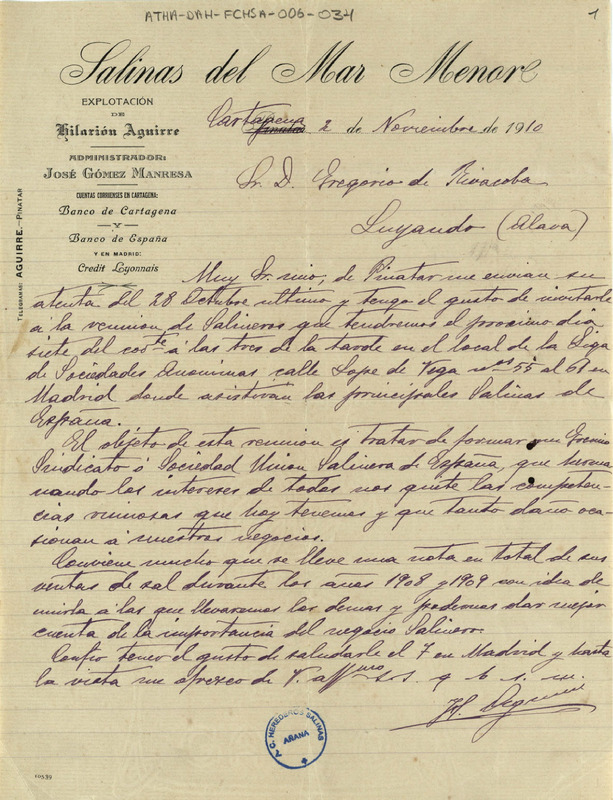 ATHA-DAH-FCHSA-006-034
1
Salinas del Mar Menor
EXPLOTACIÓN
DE
Hilarión Aguirre
ADMINISTRADOR:
JOSÉ GÓMEZ MANRESA
CUENTAS CORRIENTES EN CARTAGENA:
Banco de Cartagena
—Y—
Banco de España
Y EN MADRID:
Credit Lyonnais
TELEGRAMAS: AGUIRRE.—PINATAR
Cartagena
Pinatar 2 de Noviembre de 1910
Sr. D. Gregorio de Rivacoba
Luyando (Alava)
Muy Sr. mio, de Pinatar me envian su
atenta del 28 Octubre ultimo y tengo el gusto de invitarle
a la reunion de Salineros que tendremos el proximo dia
siete del corte á las tres de la tarde en el local de la Liga
de Sociedades Anonimas calle Lope de Vega nos 55 al 61 en
Madrid donde asistirán las principales Salinas de
España.
El objeto de esta reunion es tratar de formar un Gremio
Sindicato ó Sociedad Union Salinera de España, que herma
nando los intereses de todos nos quite las competen
cias ruinosas que hoy tenemos y que tanto daño oca
sionan a nuestros negocios.
Conviene mucho que se lleve una nota en total de sus
ventas de sal durante los años 1908 y 1909 con idea de
unirla a las que llevaremos los demas y podernos dar mejor
cuenta de la importancia del negocio Salinero.
Confio tener el gusto de saludarle el 7 en Madrid y hasta
la vista me ofrezco de V. affmo s. s. q. b. s. m.
H. Aguirre
C. HEREDEROS SALINAS
ARANA
10539